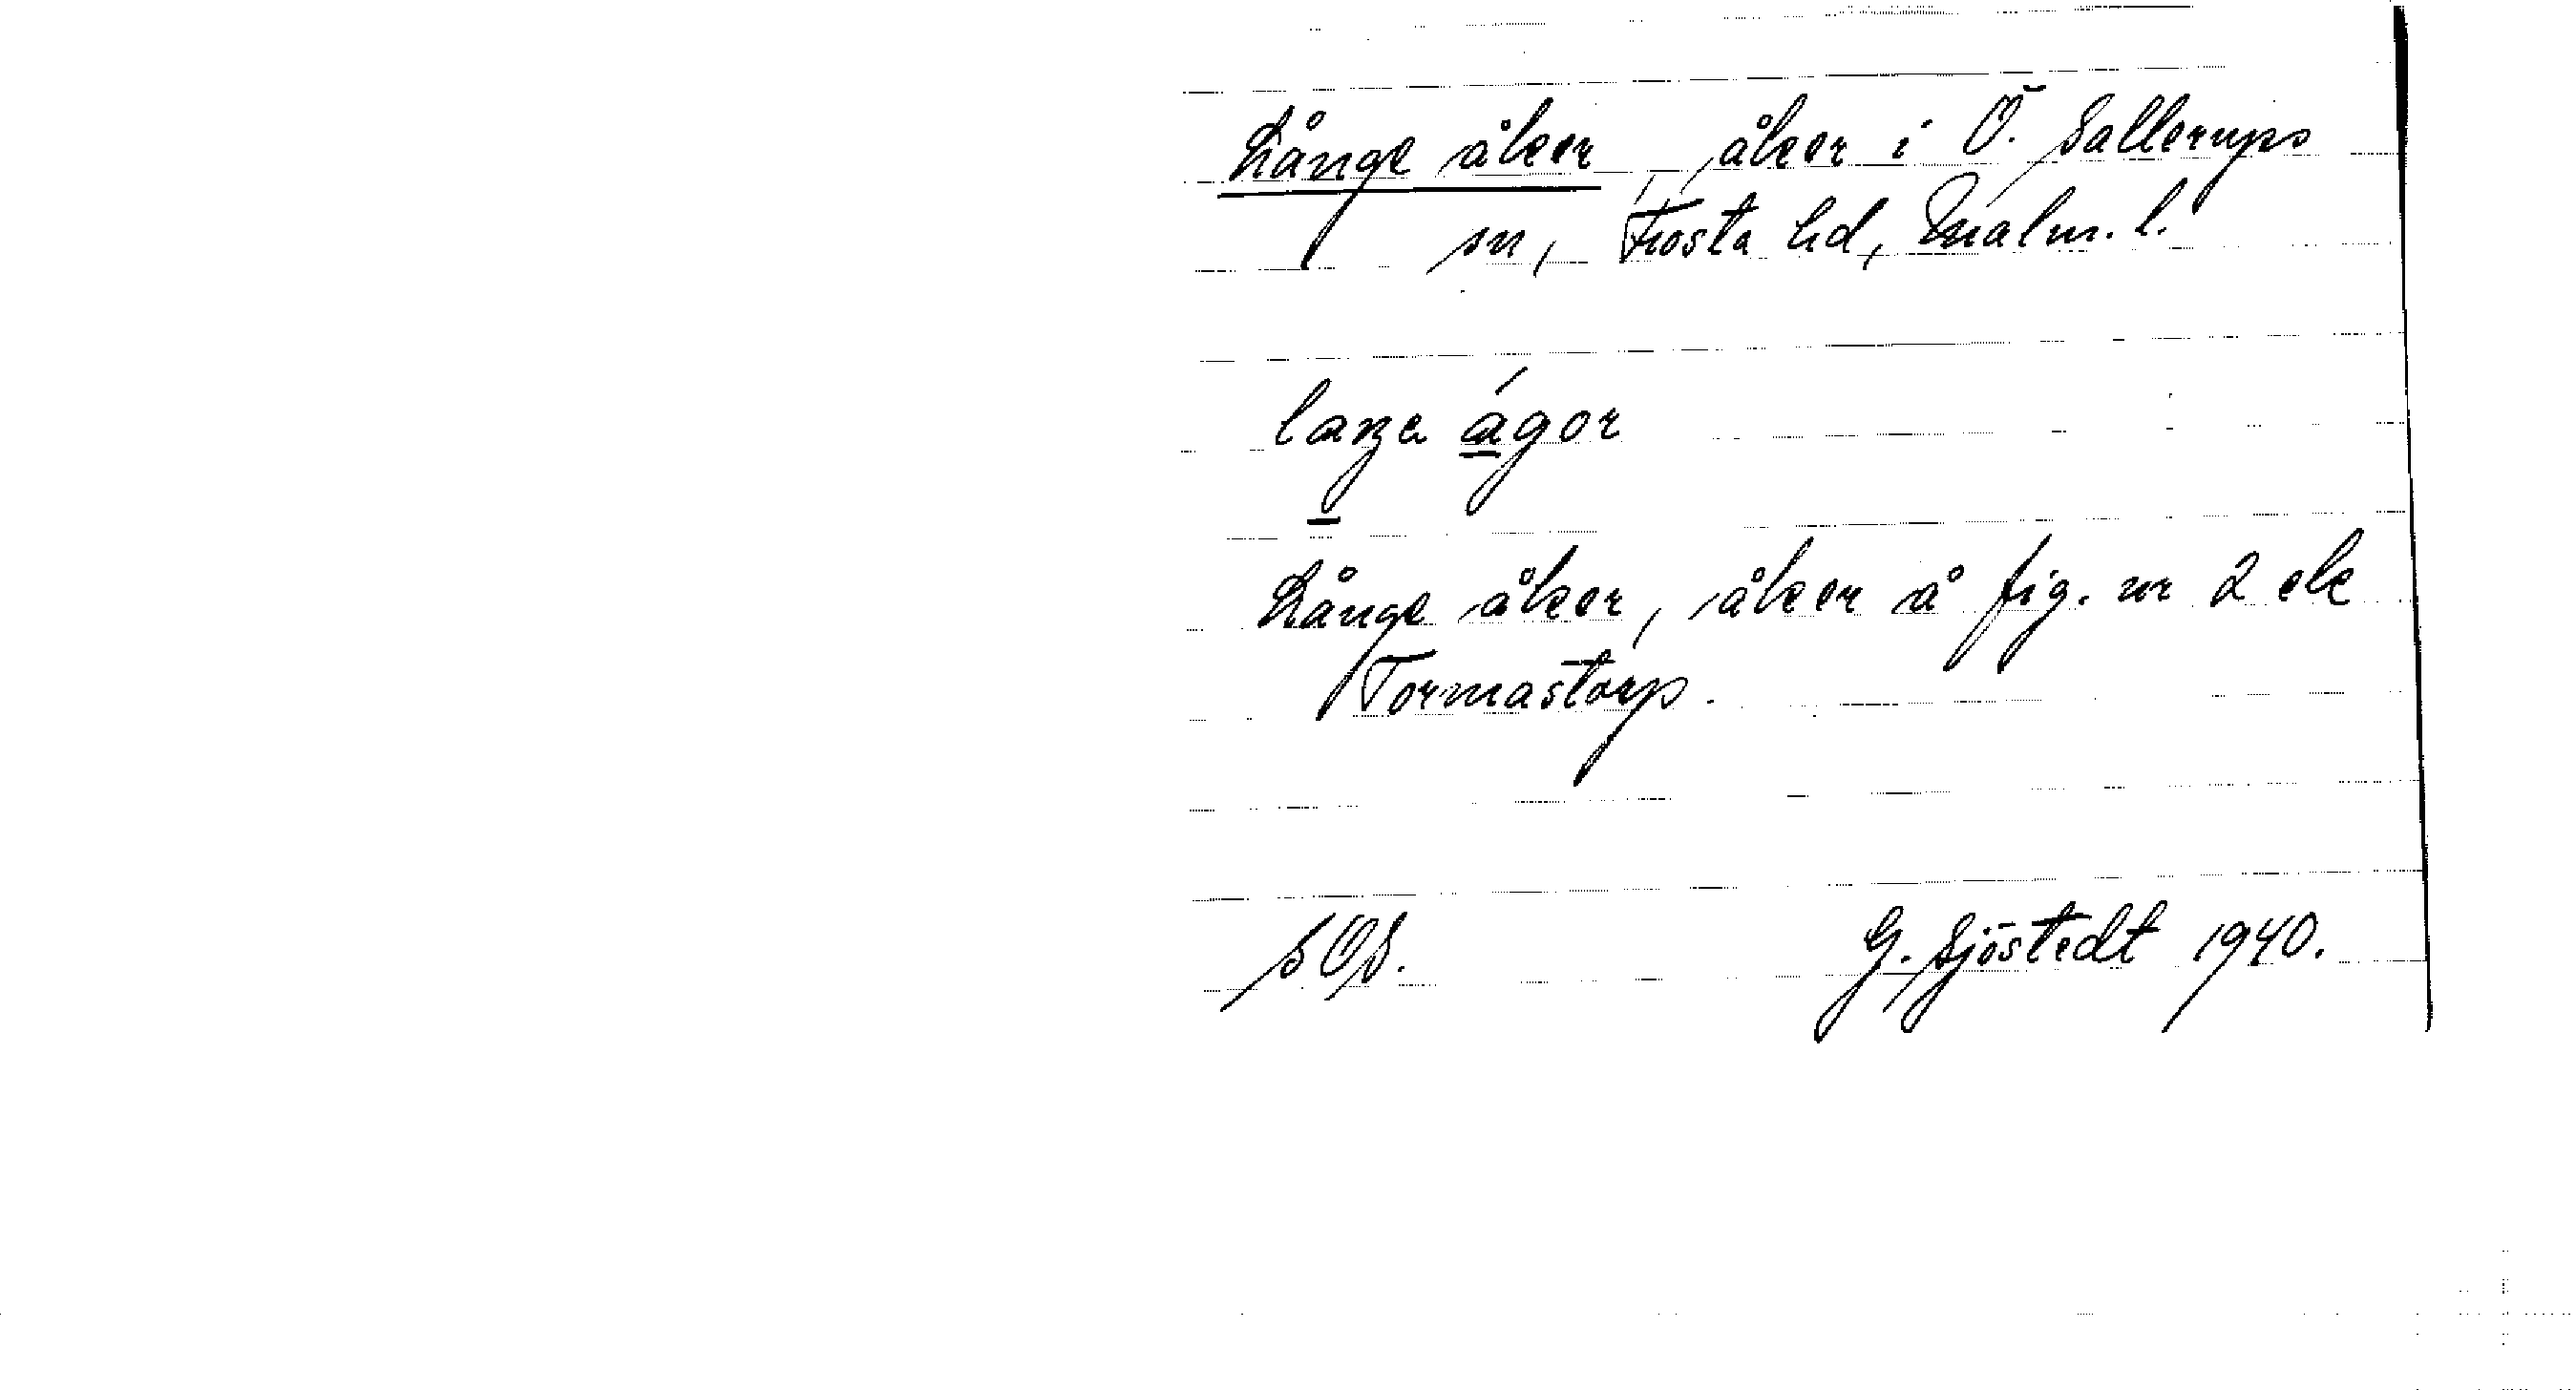 Långe åker, åker i Ö. Sallerups
sn, Frosta hd, Malm. l.
laŋe ágor
Långe åker, åker å fig. nr 2 ek
Tormastorp.
SOS. G. Sjöstedt 1940.